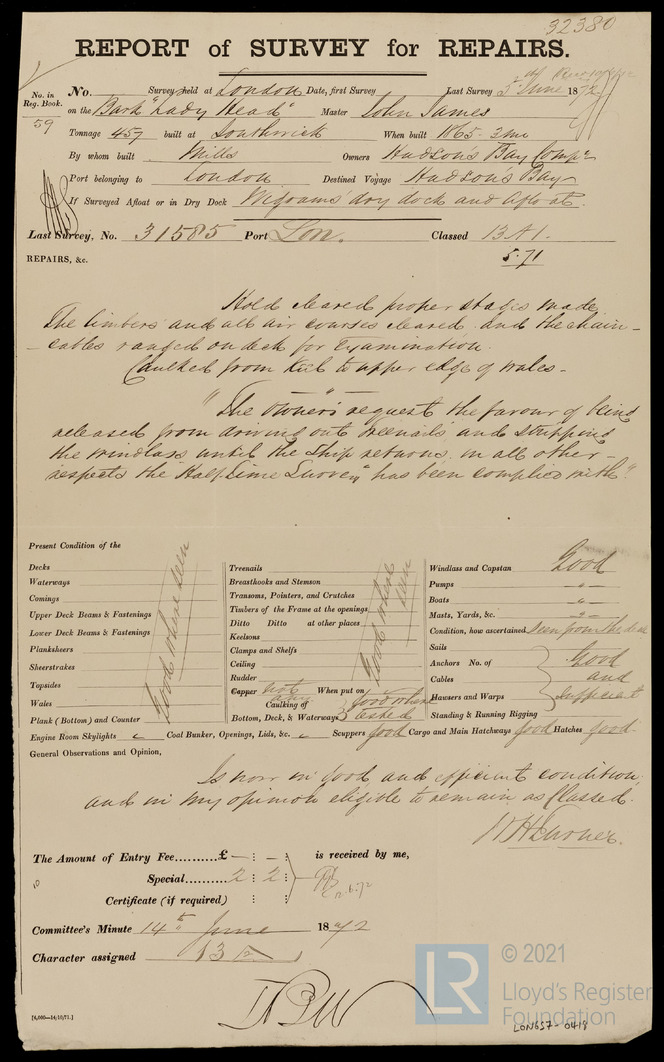 32380
REPORT of SURVEY for REPAIRS.
No. in
Reg. Book.
59
No. Survey held at London Date, first Survey Last Survey 5 June 1872
on the Bark "Lady Head" Master John James
Tonnage 457 built at Southwick When built 1865-3mo
By whom built Mills Owners Hudson's Bay Compy
Port belonging to London Destined Voyage Hudson's Bay
If Surveyed Afloat or in Dry Dock Wigrams' dry dock and afloat.
Last Survey, No. 31585 Port Lon. Classed 13A1.
5.71
REPAIRS, &c.
Hold cleared proper stages made
The limbers and all air courses cleared and the chain-
-cables ranged on deck for Examination.
Caulked from Keel to upper edge of wales-
"The owners request the favour of being
released from driving out treenails and stripping
the windlass until the ship returns, in all other-
respects the Half-time Survey has been complied with"
Present Condition of the
Decks
Waterways
Comings
Upper Deck Beams & Fastenings
Lower Deck Beams & Fastenings
Planksheers
Sheerstrakes
Topsides
Wales
Plank (Bottom) and Counter
Good where seen
Treenails
Breasthooks and Stemson
Transoms, Pointers, and Crutches
Timbers of the Frame at the openings
Ditto Ditto at other places
Keelsons
Clamps and Shelfs
Ceiling
Rudder
Good where seen
Copper not any When put on
Caulking of
Bottom, Deck, & Waterways } good where asked
Windlass and Capstan Good
Pumps "
Boats "
Masts, Yards, &c. "
Condition, how ascertained Seen from the deck
Sails
Anchors No. of
Cables
Hawsers and Warps
Good and sufficient
Standing & Running Rigging
Engine Room Skylights Coal Bunker, Openings, Lids, &c. Scuppers good Cargo and Main Hatchways good Hatches good
General Observations and Opinion,
Is now in good and efficient condition,
and in my opinion eligible to remain as Classed.
W H Turner.
The Amount of Entry Fee..........£ - : - : is received by me,
Special.......... 2 : 2 :
Certificate (if required) : :
Committee's Minute 14th June 1872
Character assigned 13
[6,000—14/10/71.]
LR
© 2021
Lloyd's Register
Foundation
LON657-0418